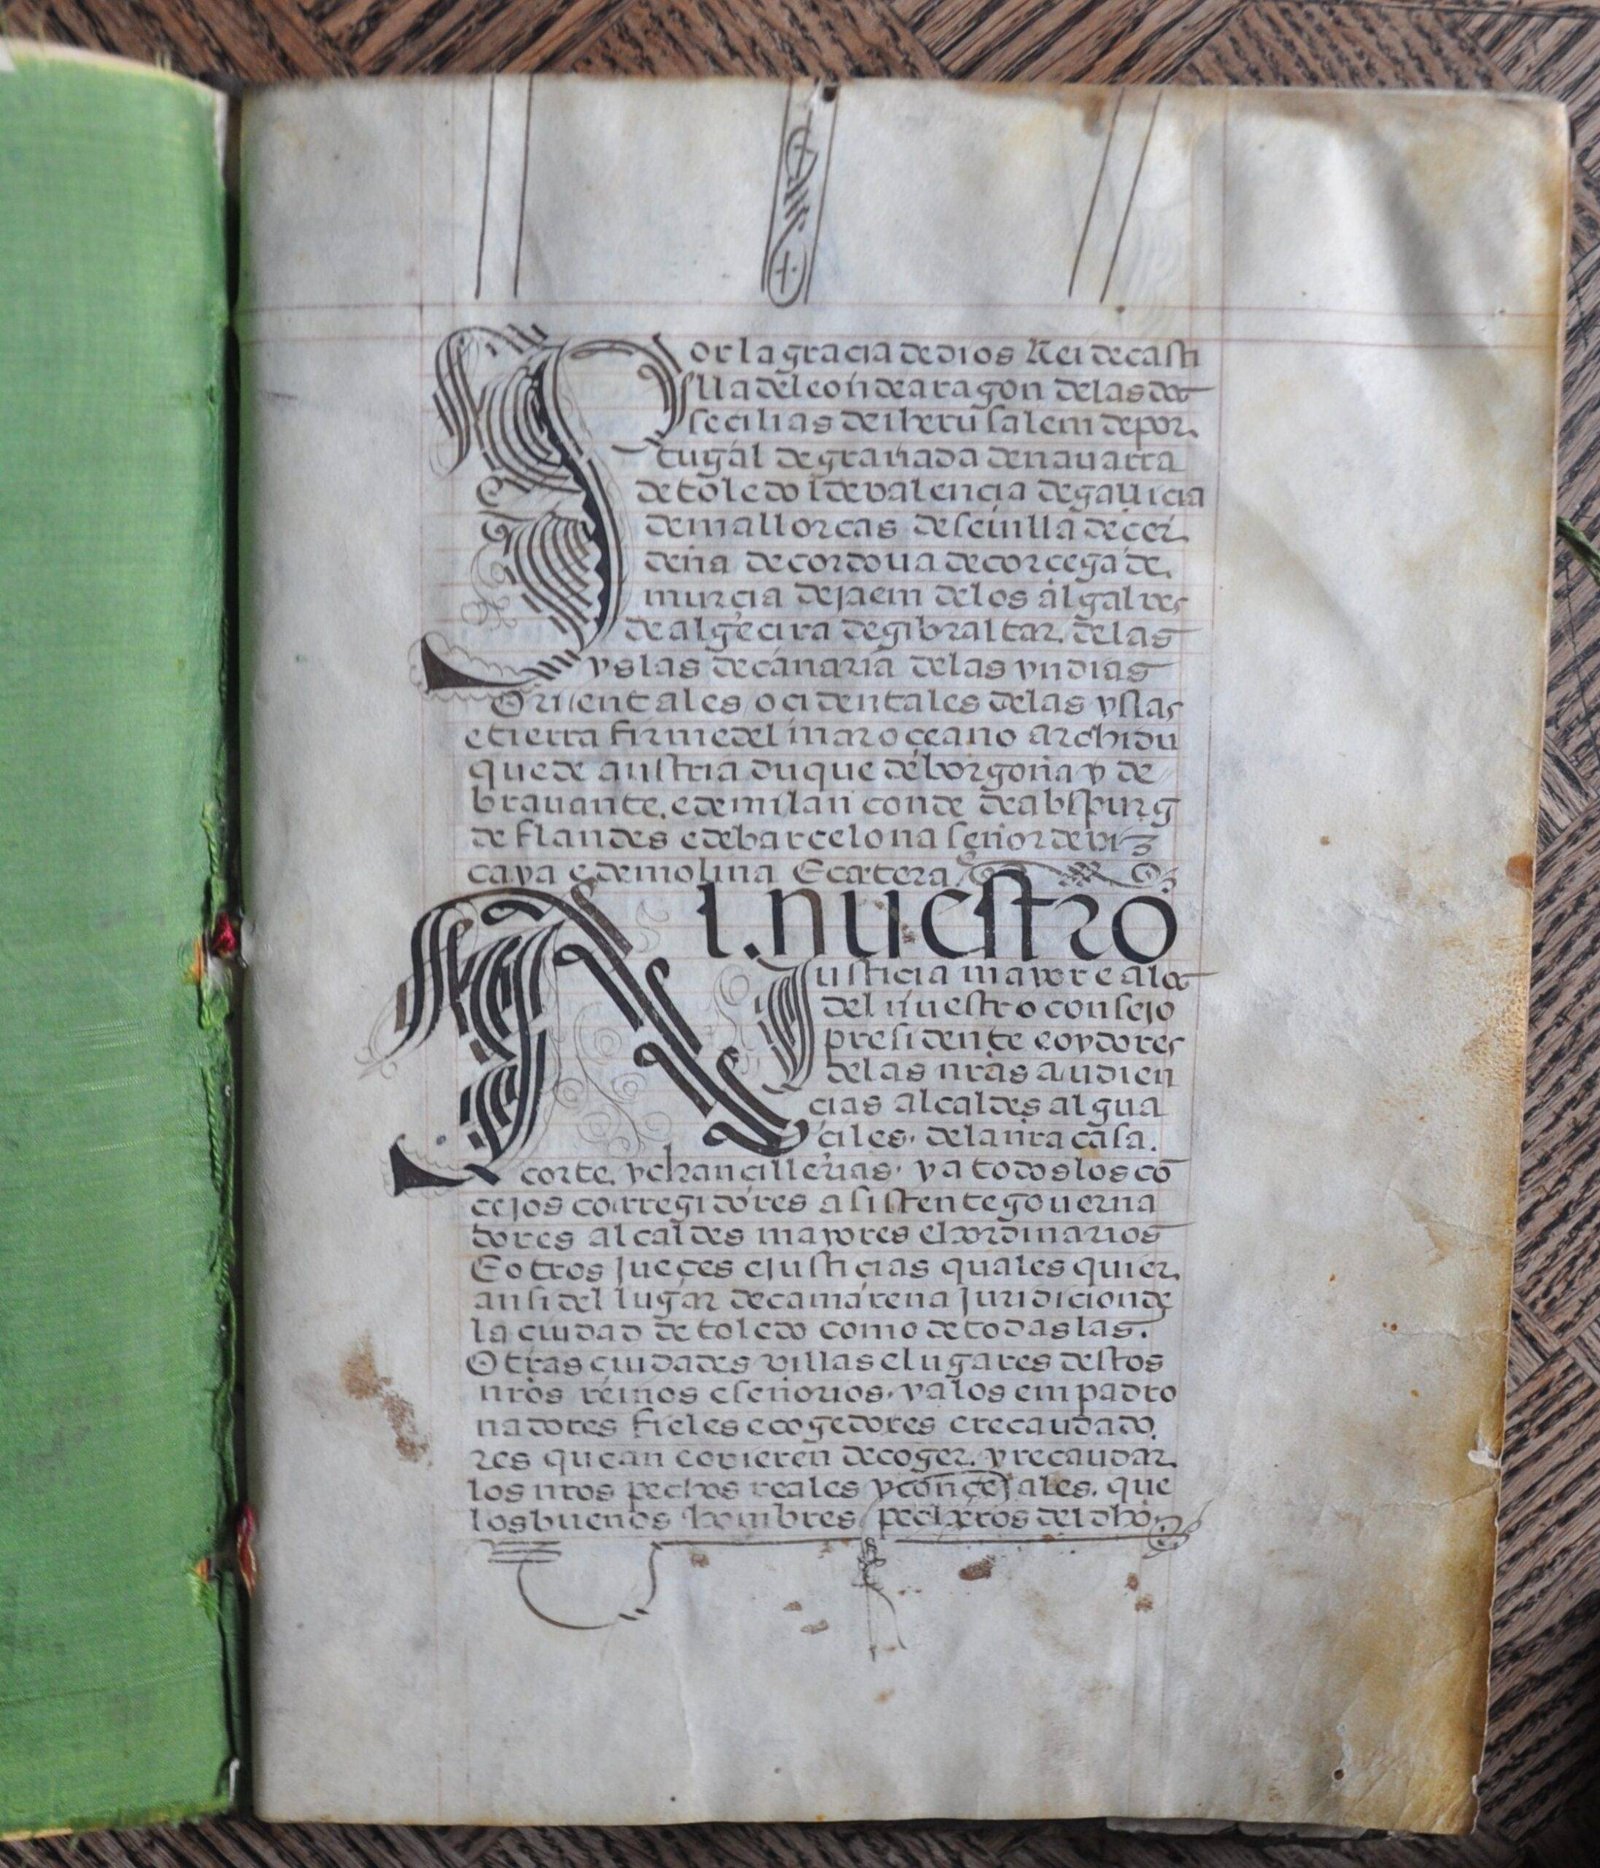 Por la gracia de dios Rei de casti
lla de leon de aragon de las dos
secilias de iherusalem de por
tugal de granada de nauarra
de toledo de valencia de gallicia
de mallorcas de seuilla de cer
deña de cordoua de corcega de
murcia de jaem de los algalves
de algecira de gibraltar, de las
yslas de canaria de las yndias
Orientales, ocidentales de las yslas
e tierra firme del mar oceano archidu
que de austria duque de borgoña y de
brauante. e de milan conde de abspurg
de flandes e de barcelona señor de viz
caya e de molina Ecætera
Al. nuestro
Justicia mayor e a los
del nuestro consejo
presidente e oydores
de las nr̃as audien
cias alcaldes algua
ciles. de la nr̃a casa.
corte. y chancillerias. y a todos los cõ
cejos corregidores asistente gouerna
dores alcaldes mayores e hordinarios
E otros jueçes e justicias quales quier
ansi del lugar de camarena juridicion de
la ciudad de toledo como de todas las.
Otras ciudades villas e lugares destos
nr̃os reinos e señorios. y a los empadro
nadores fieles e cogedores e recaudado
res que an e ovieren de coger. y recaudar
los nr̃os pechos reales y concejales. que
los buenos hombres pecheros del dho